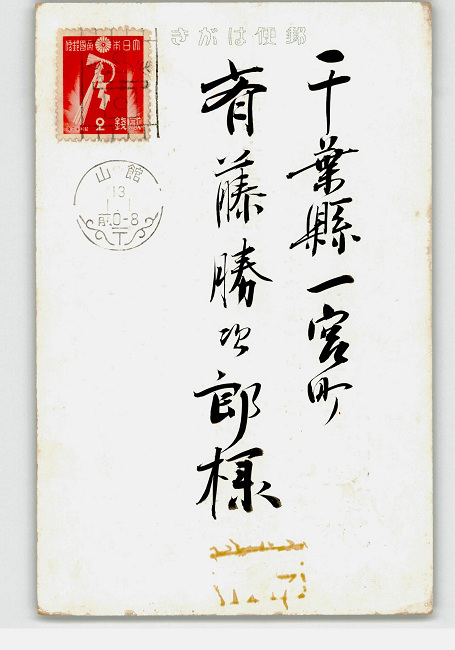 郵便はがき
千葉縣一宮町
斉藤勝次郎様
大日本帝國郵便
館山
13
1.1
前0-8